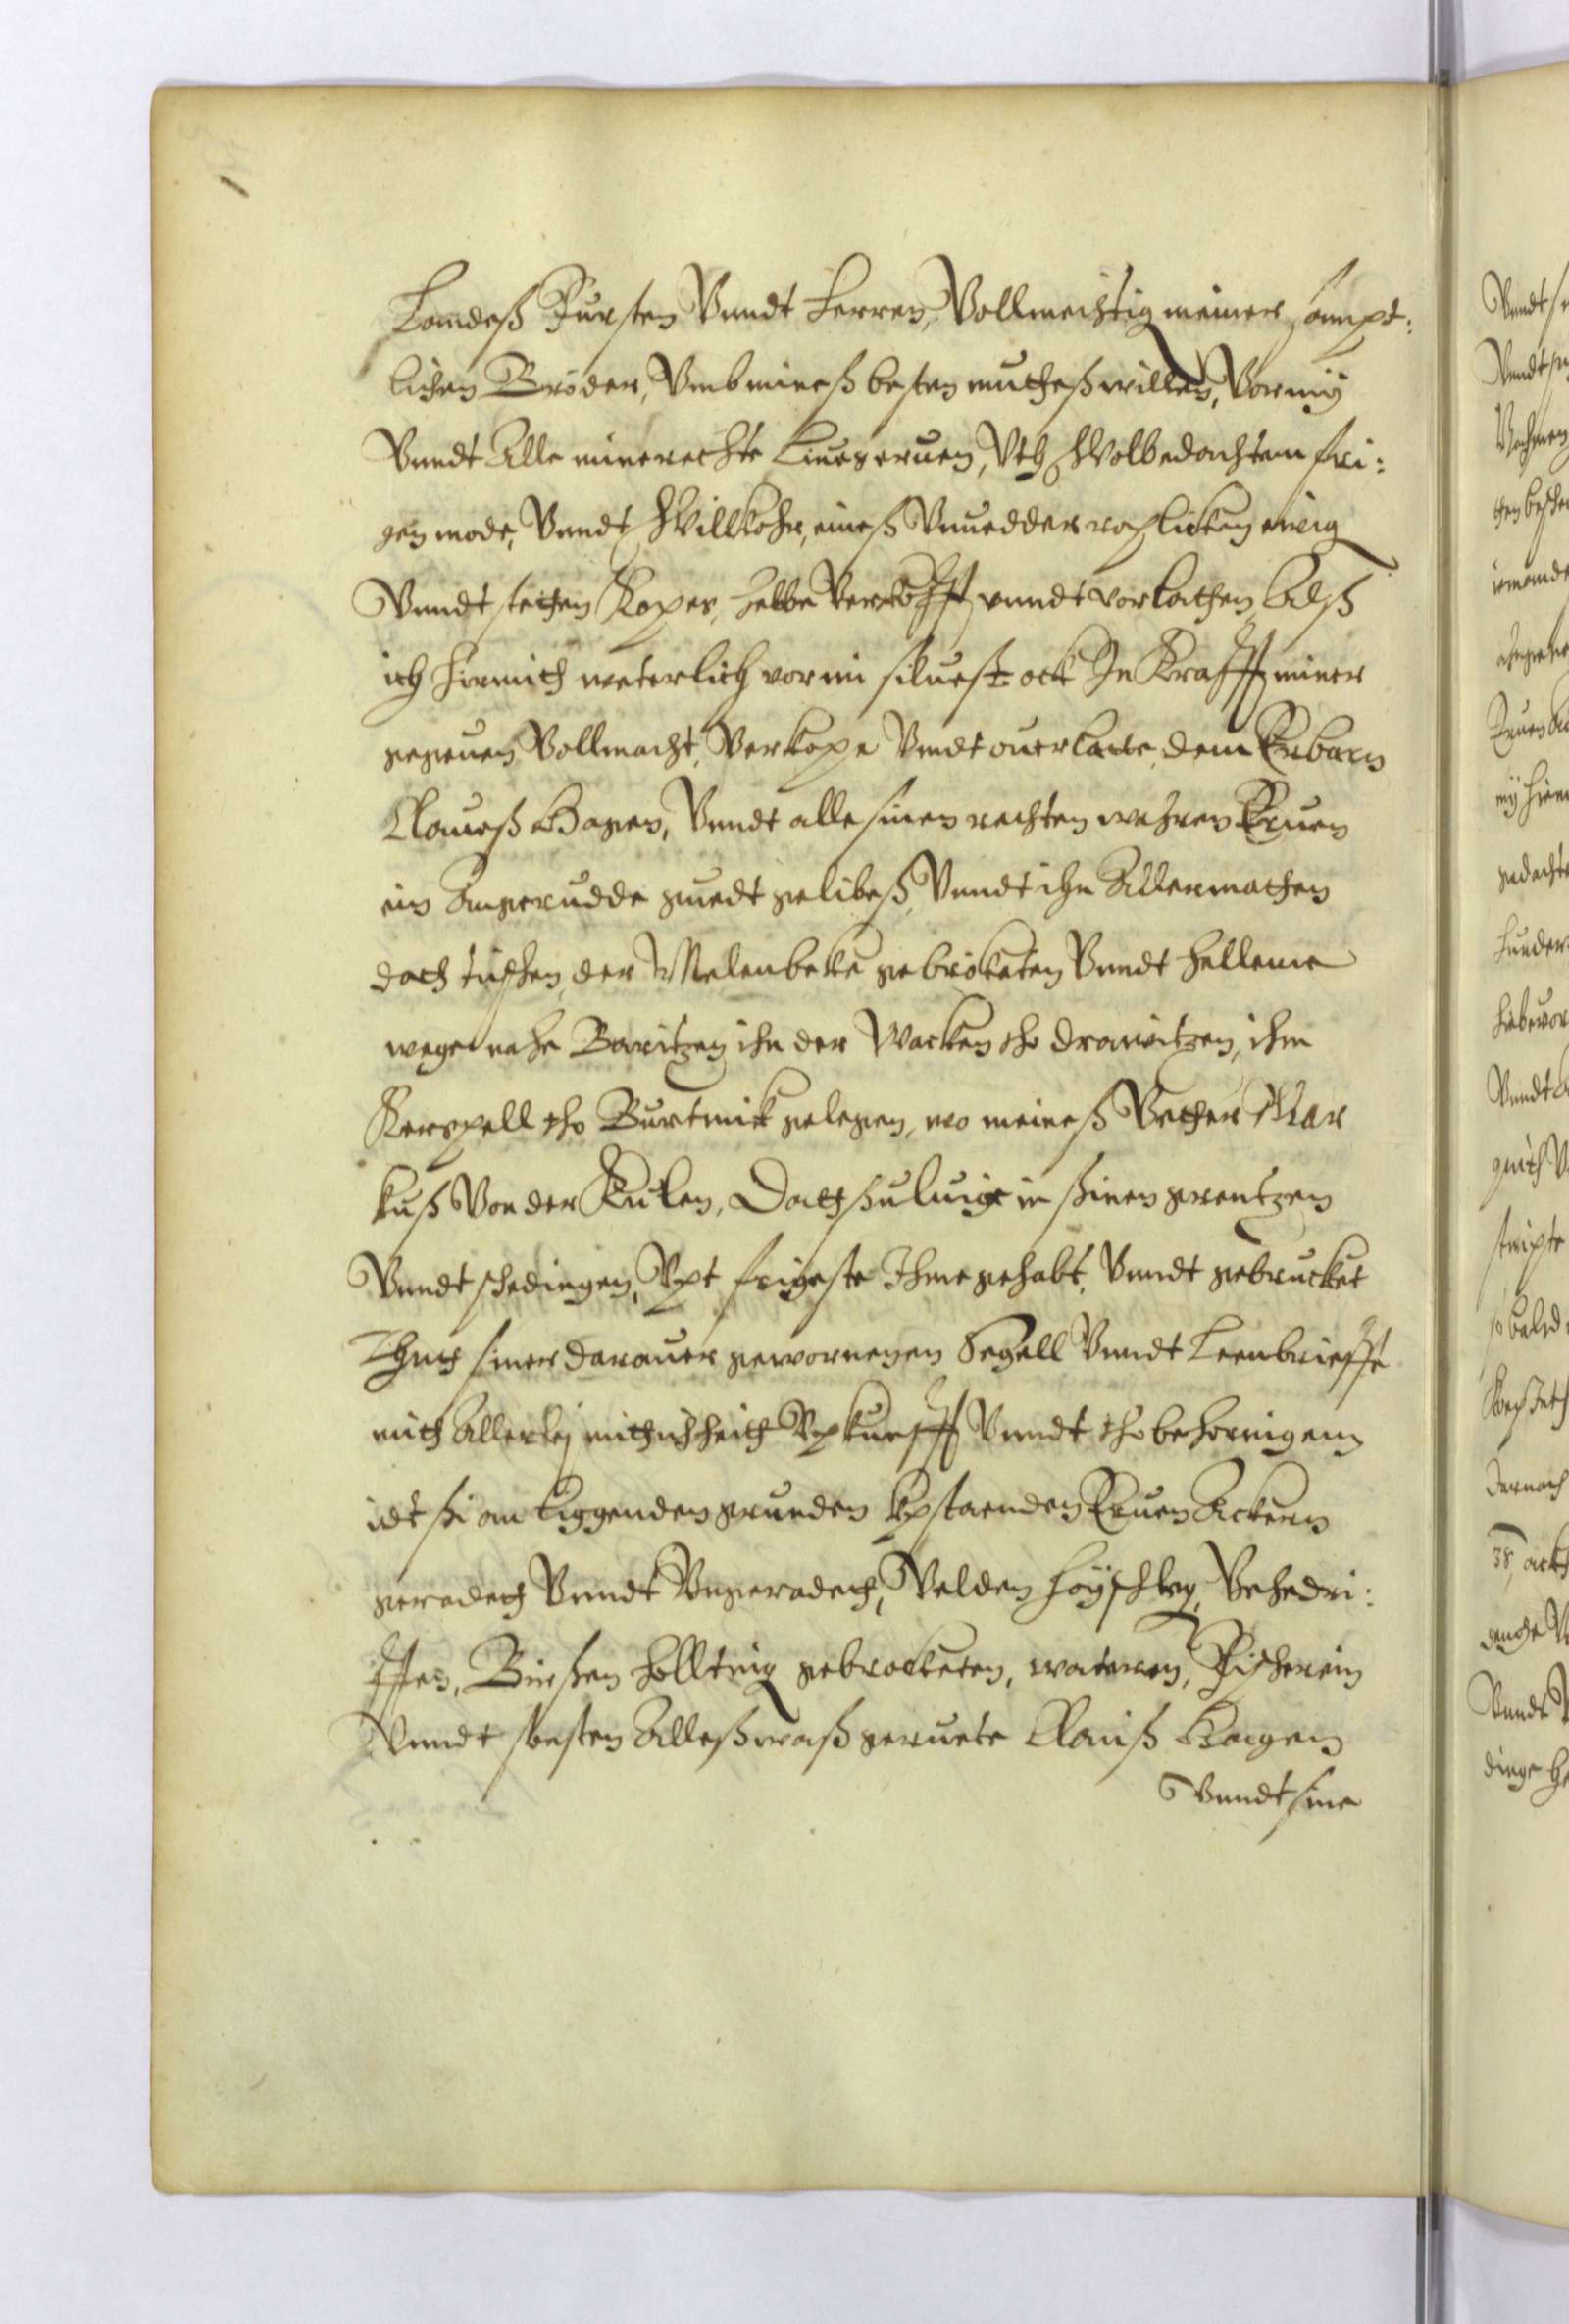 Landeß Fursten Vnndt Herren, Vollmechtig meiner sampt:
lichen Bröder, Vmb mineß besten nutheß willen, Vor mÿ
Vnndt Alle mine rechte Liueseruen, Vth Wolbedachtem fri:
gen mode, Vnndt Willkohr, eineß Vnuedderroplicken ewig
Vnndt steten Kopes, hebbe Verköfft vnndt vorlathen, Alß
ich hirmith weterlich vor mi siluest ock In Krafft miner
gegeuen Vollmacht, Verkope Vnndt ouerlate, dem Erbarn
Claueß Hagen, Vnndt alle sinen rechten wahren Eruen
ein Angerudde guedt geliket, Vnndt ihn Allermathen
dath tuschen der Melenbeke gebröketen Vnndt helleme
wege nahe Baritzen ihn der Wacken tho drawitzen, ihm
Kerspell tho Burtnick gelegen, wo meineß Vether Mar
kuß Von der Kulen, Dath suluige in sinen grentzen
Vnndt schedingen, Vpt frigeste Ihme gehabt, Vnndt gebrucket
Thuth siner darauer geworuenen Segell Vnndt Leenbrieffe
mith Allerley nuthicheith Vpkunfft Vnndt tho behoringem
idt si an liggenden grunden Vpstaenden Eruen Ackern
geradeth Vnndt Vngeradeth, Velden höyschleg, Vehedri:
fften, Birßen holltnig gebrocketen, wateren, Fischerein
Vnndt sunsten Alleß waß gerurte Clauß Hagen
Vnndt sine